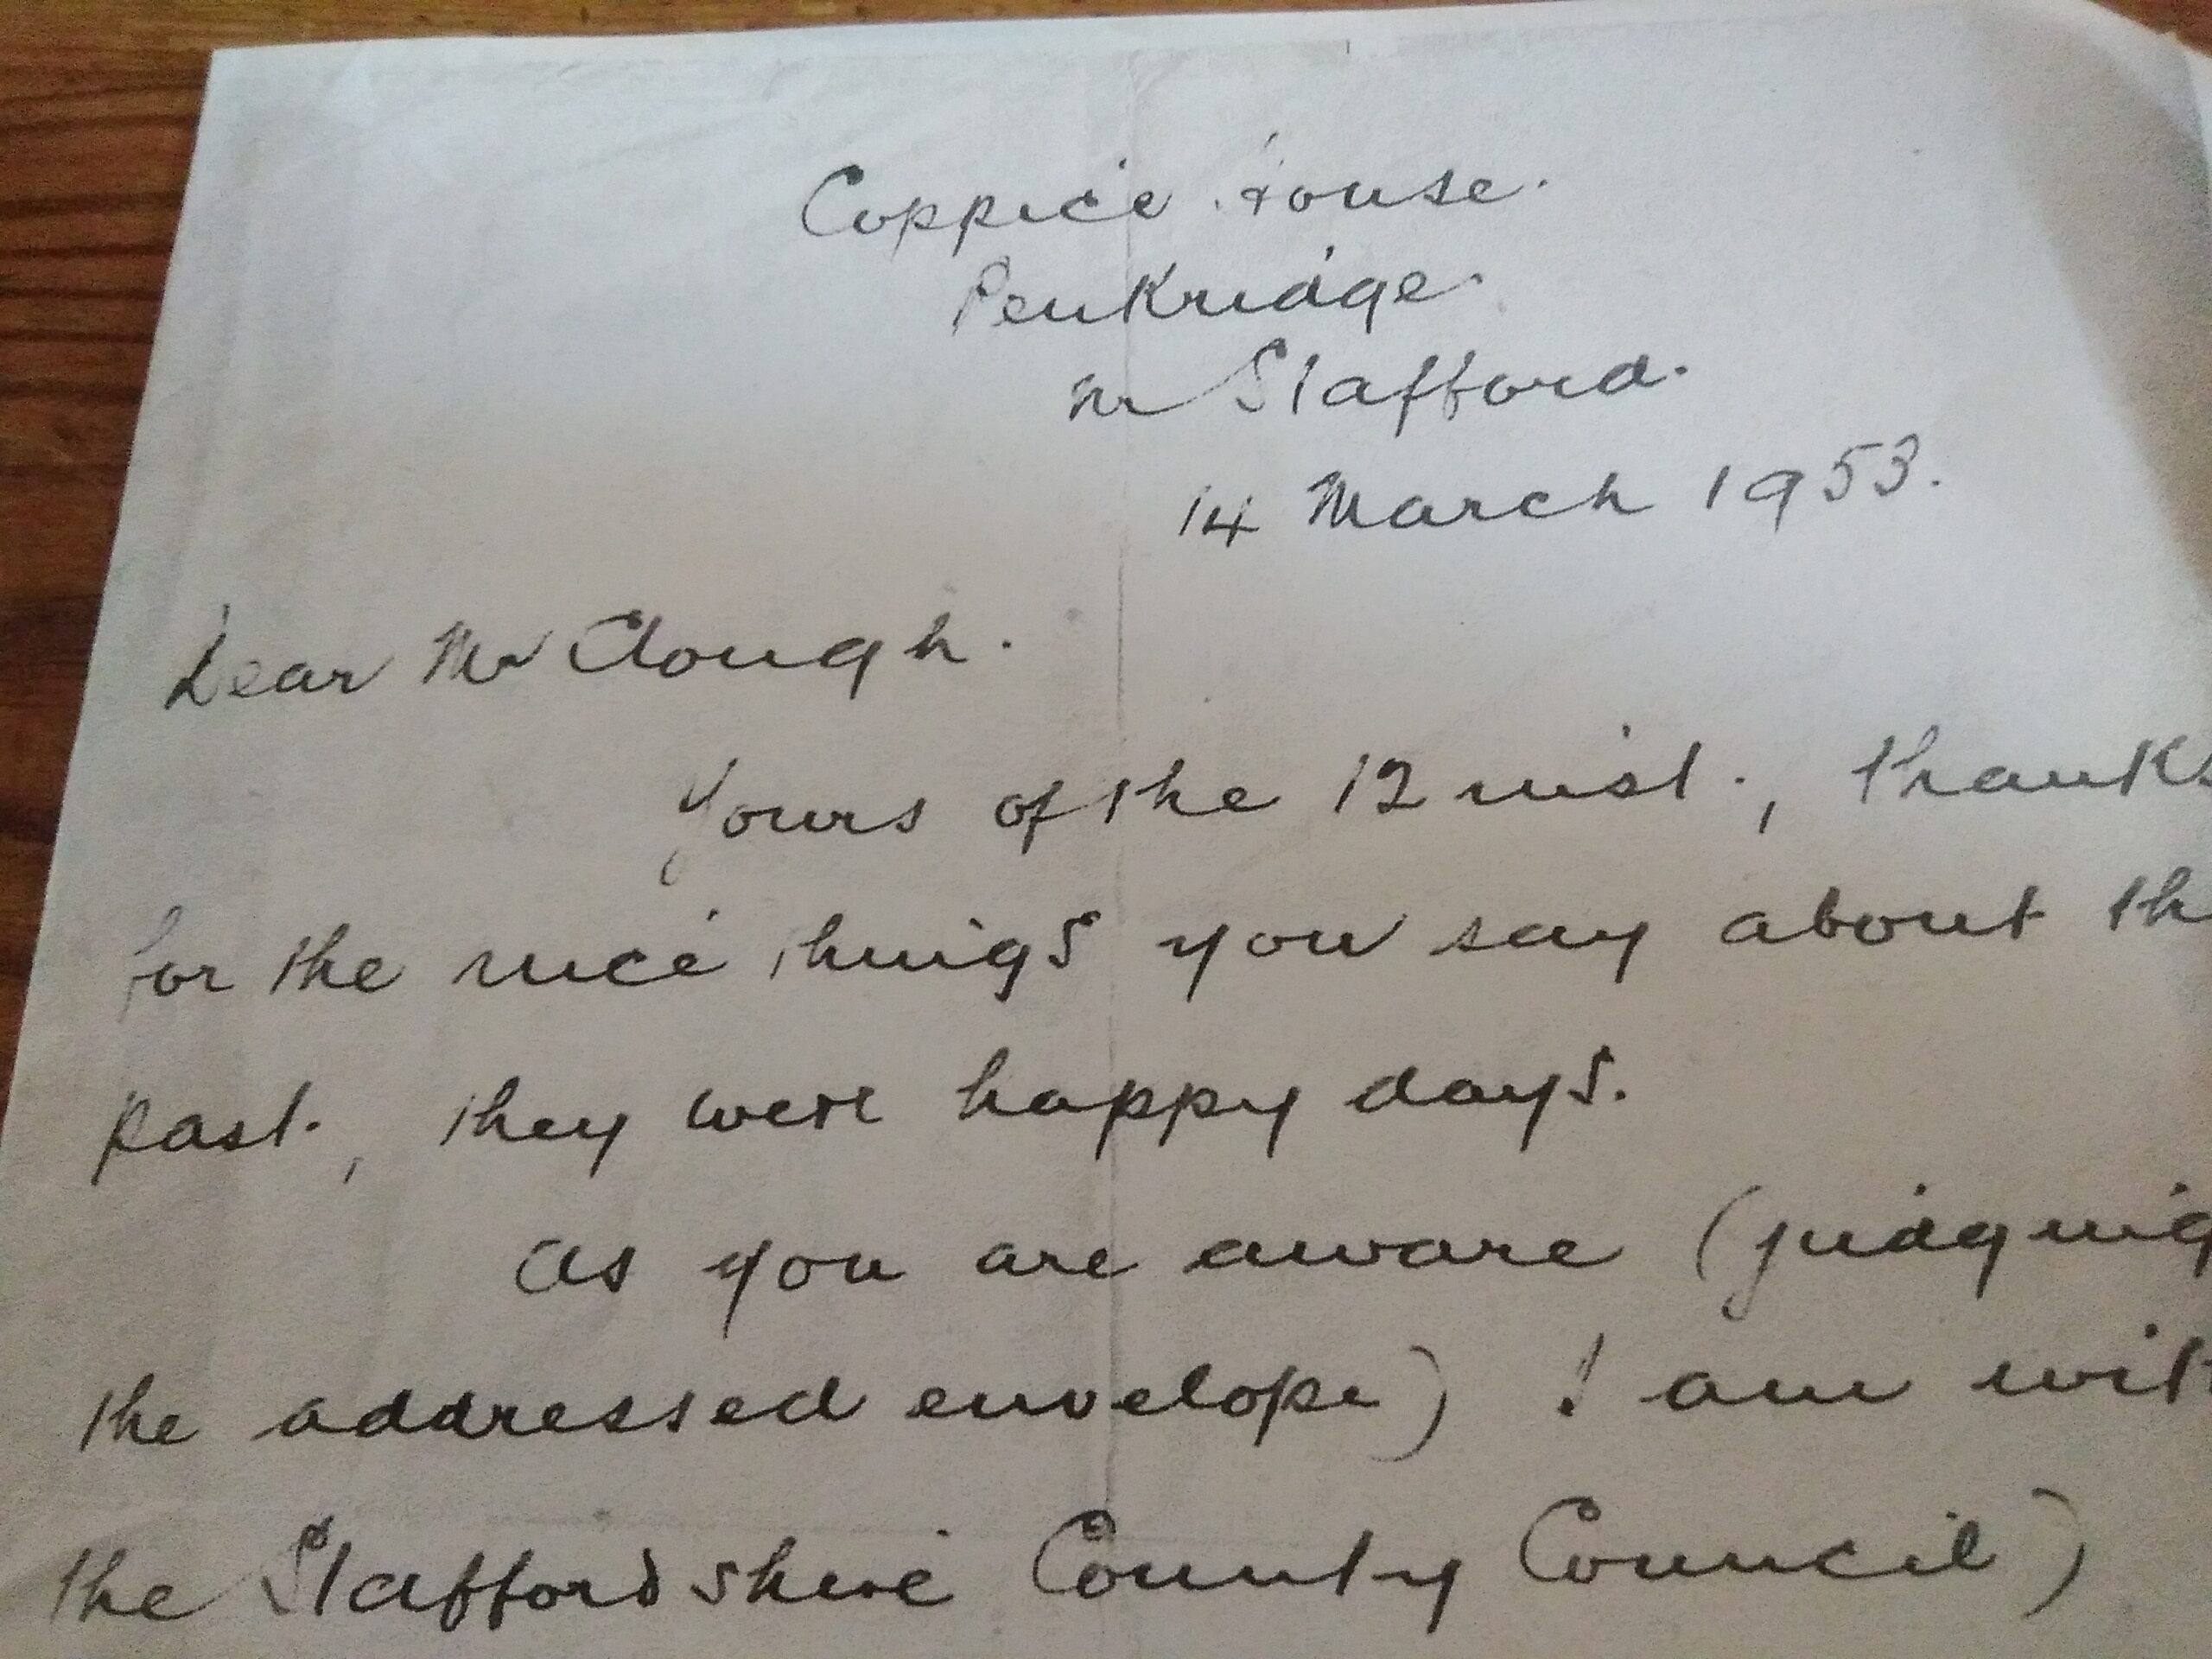 Coppice House.
Penkridge.
nr Stafford.
14 March 1953.
Dear Mr Clough.
Yours of the 12 inst., thanks
for the nice things you say about th
past., they were happy days.
As you are aware (judging
the addressed envelope) I am wit
the Staffordshire County Council)